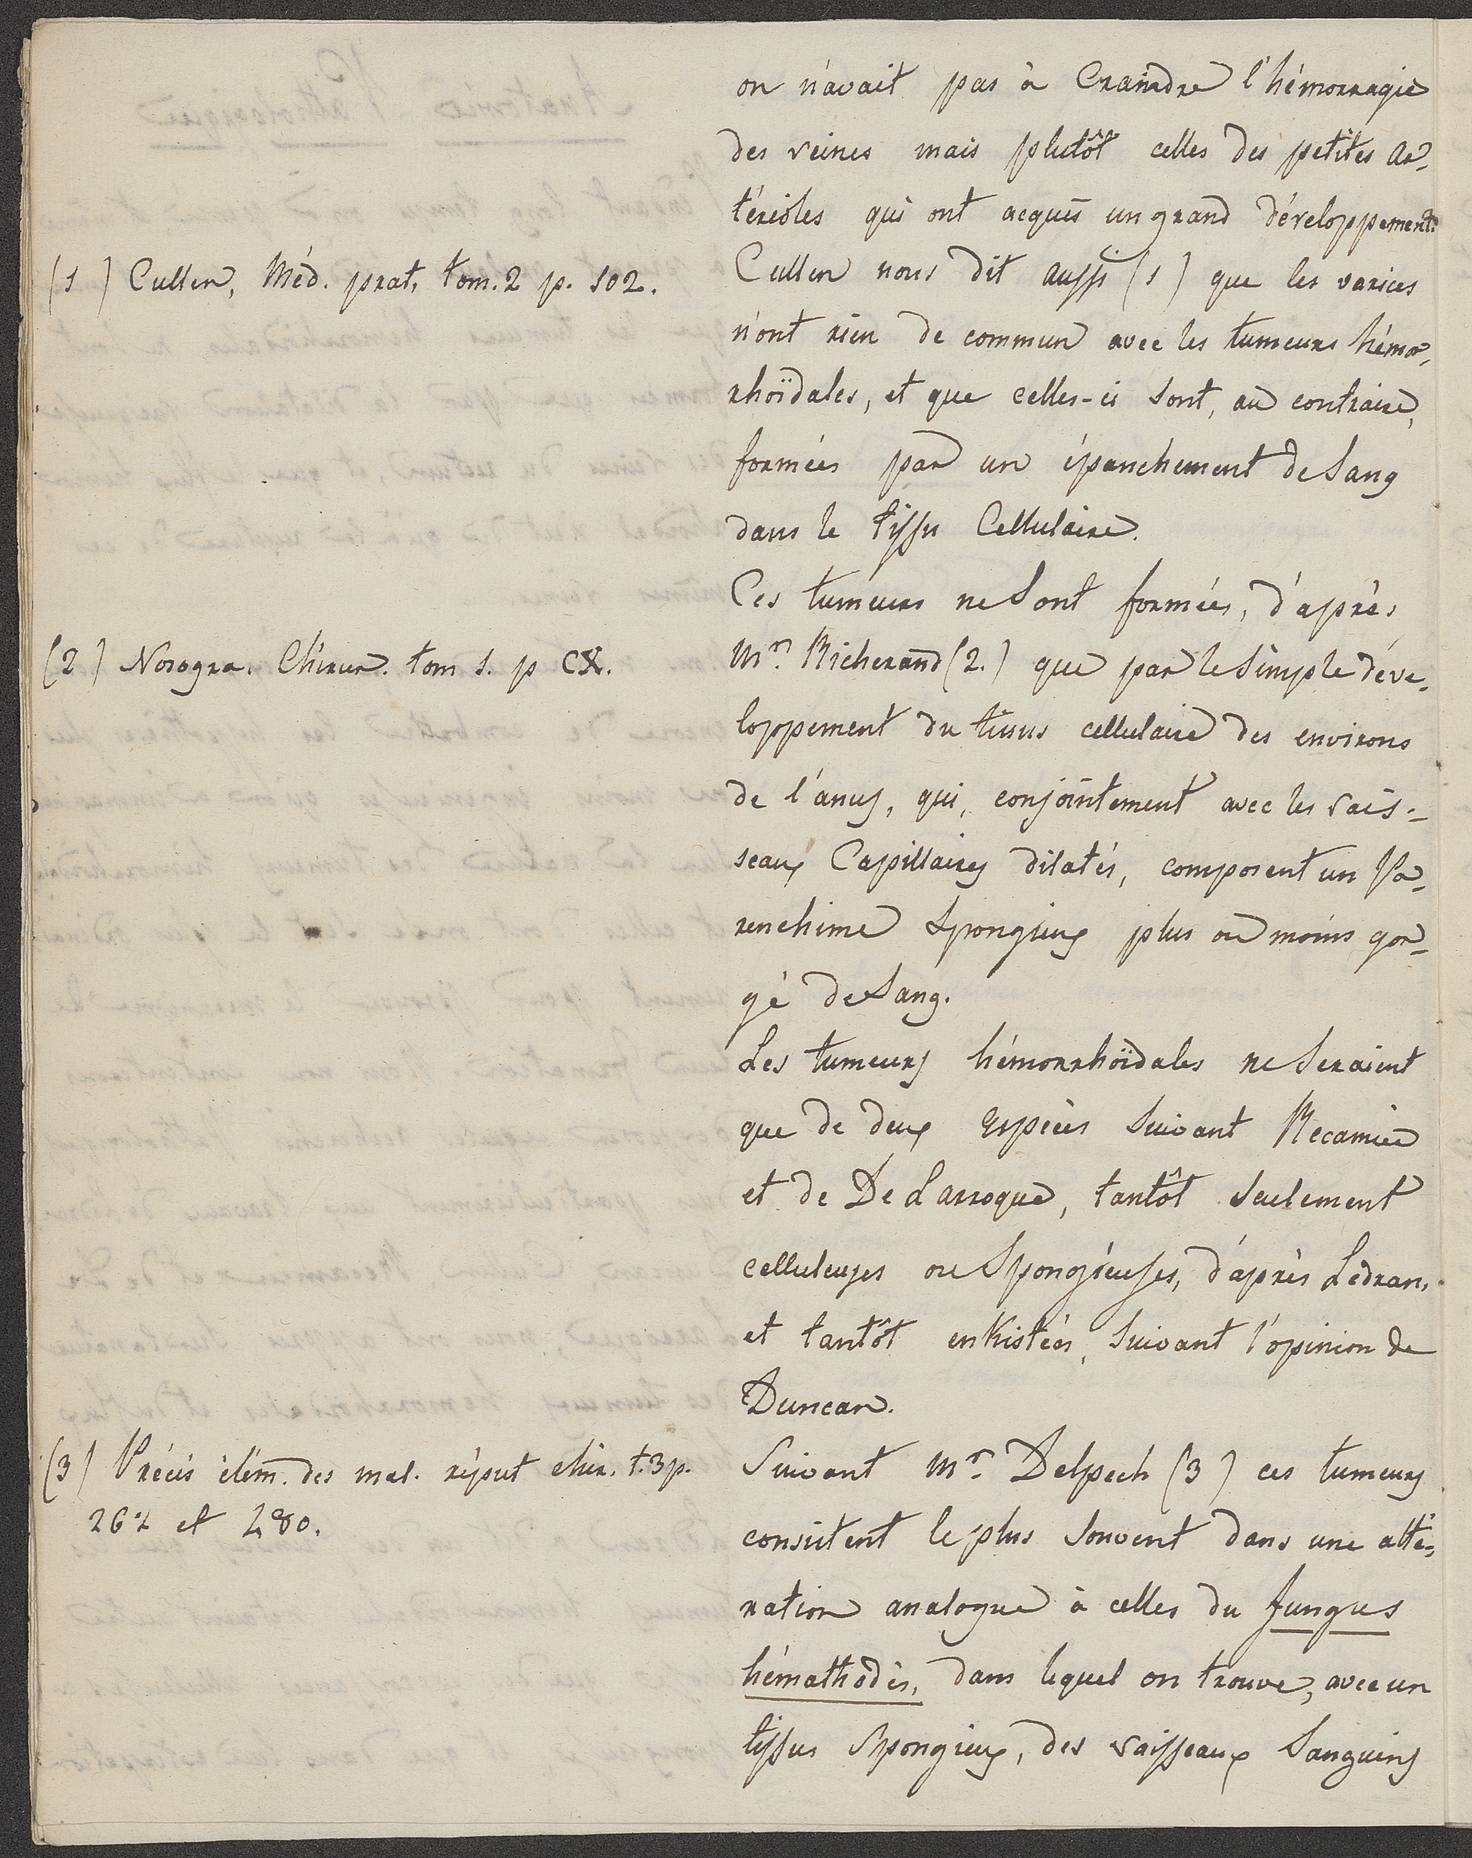 on n'avait pas à Craindre l'hémorragie
des veines mais plutôt celles des petites ar-
térioles qui ont acquis un grand développement.
(1) Cullen, Méd. prat. tom. 2 p. 102.
Cullen nous dit aussi (1) que les varices
n'ont rien de commun avec les tumeurs hémor-
rhoïdales, et que celles-ci sont, au contraire,
formées par un épanchement de Sang
dans le tissu Cellulaire.
Ces tumeurs ne Sont formées, d'après
(2) Nosogra. Chirur. tom 1. p
Mr. Richerand (2.) que par le Simple déve-
loppement du tissus cellulaire des environs
de l'anus, qui, conjointement avec les vais-
seaux Capillaires dilatés, composent un Pa-
renchime Spongieux plus ou moins gor-
gé de Sang.
Les tumeurs hémorrhoïdales ne Seraient
que de deux espèces Suivant Recamier
et de De Larroque, tantôt Seulement
celluleuses ou Spongieuses, d'après Ledran,
et tantôt enkistées, Suivant l'opinion de
Duncan.
(3) Précis élém. des mal. réput chir. t. 3 p.
262 et 280.
Suivant Mr. Delpech (3) ces tumeurs
consistent le plus Souvent dans une alté-
ration analogue à celles du fungus
hémathodès, dans lequel on trouve, avec un
tissus Spongieux, des vaisseaux Sanguins